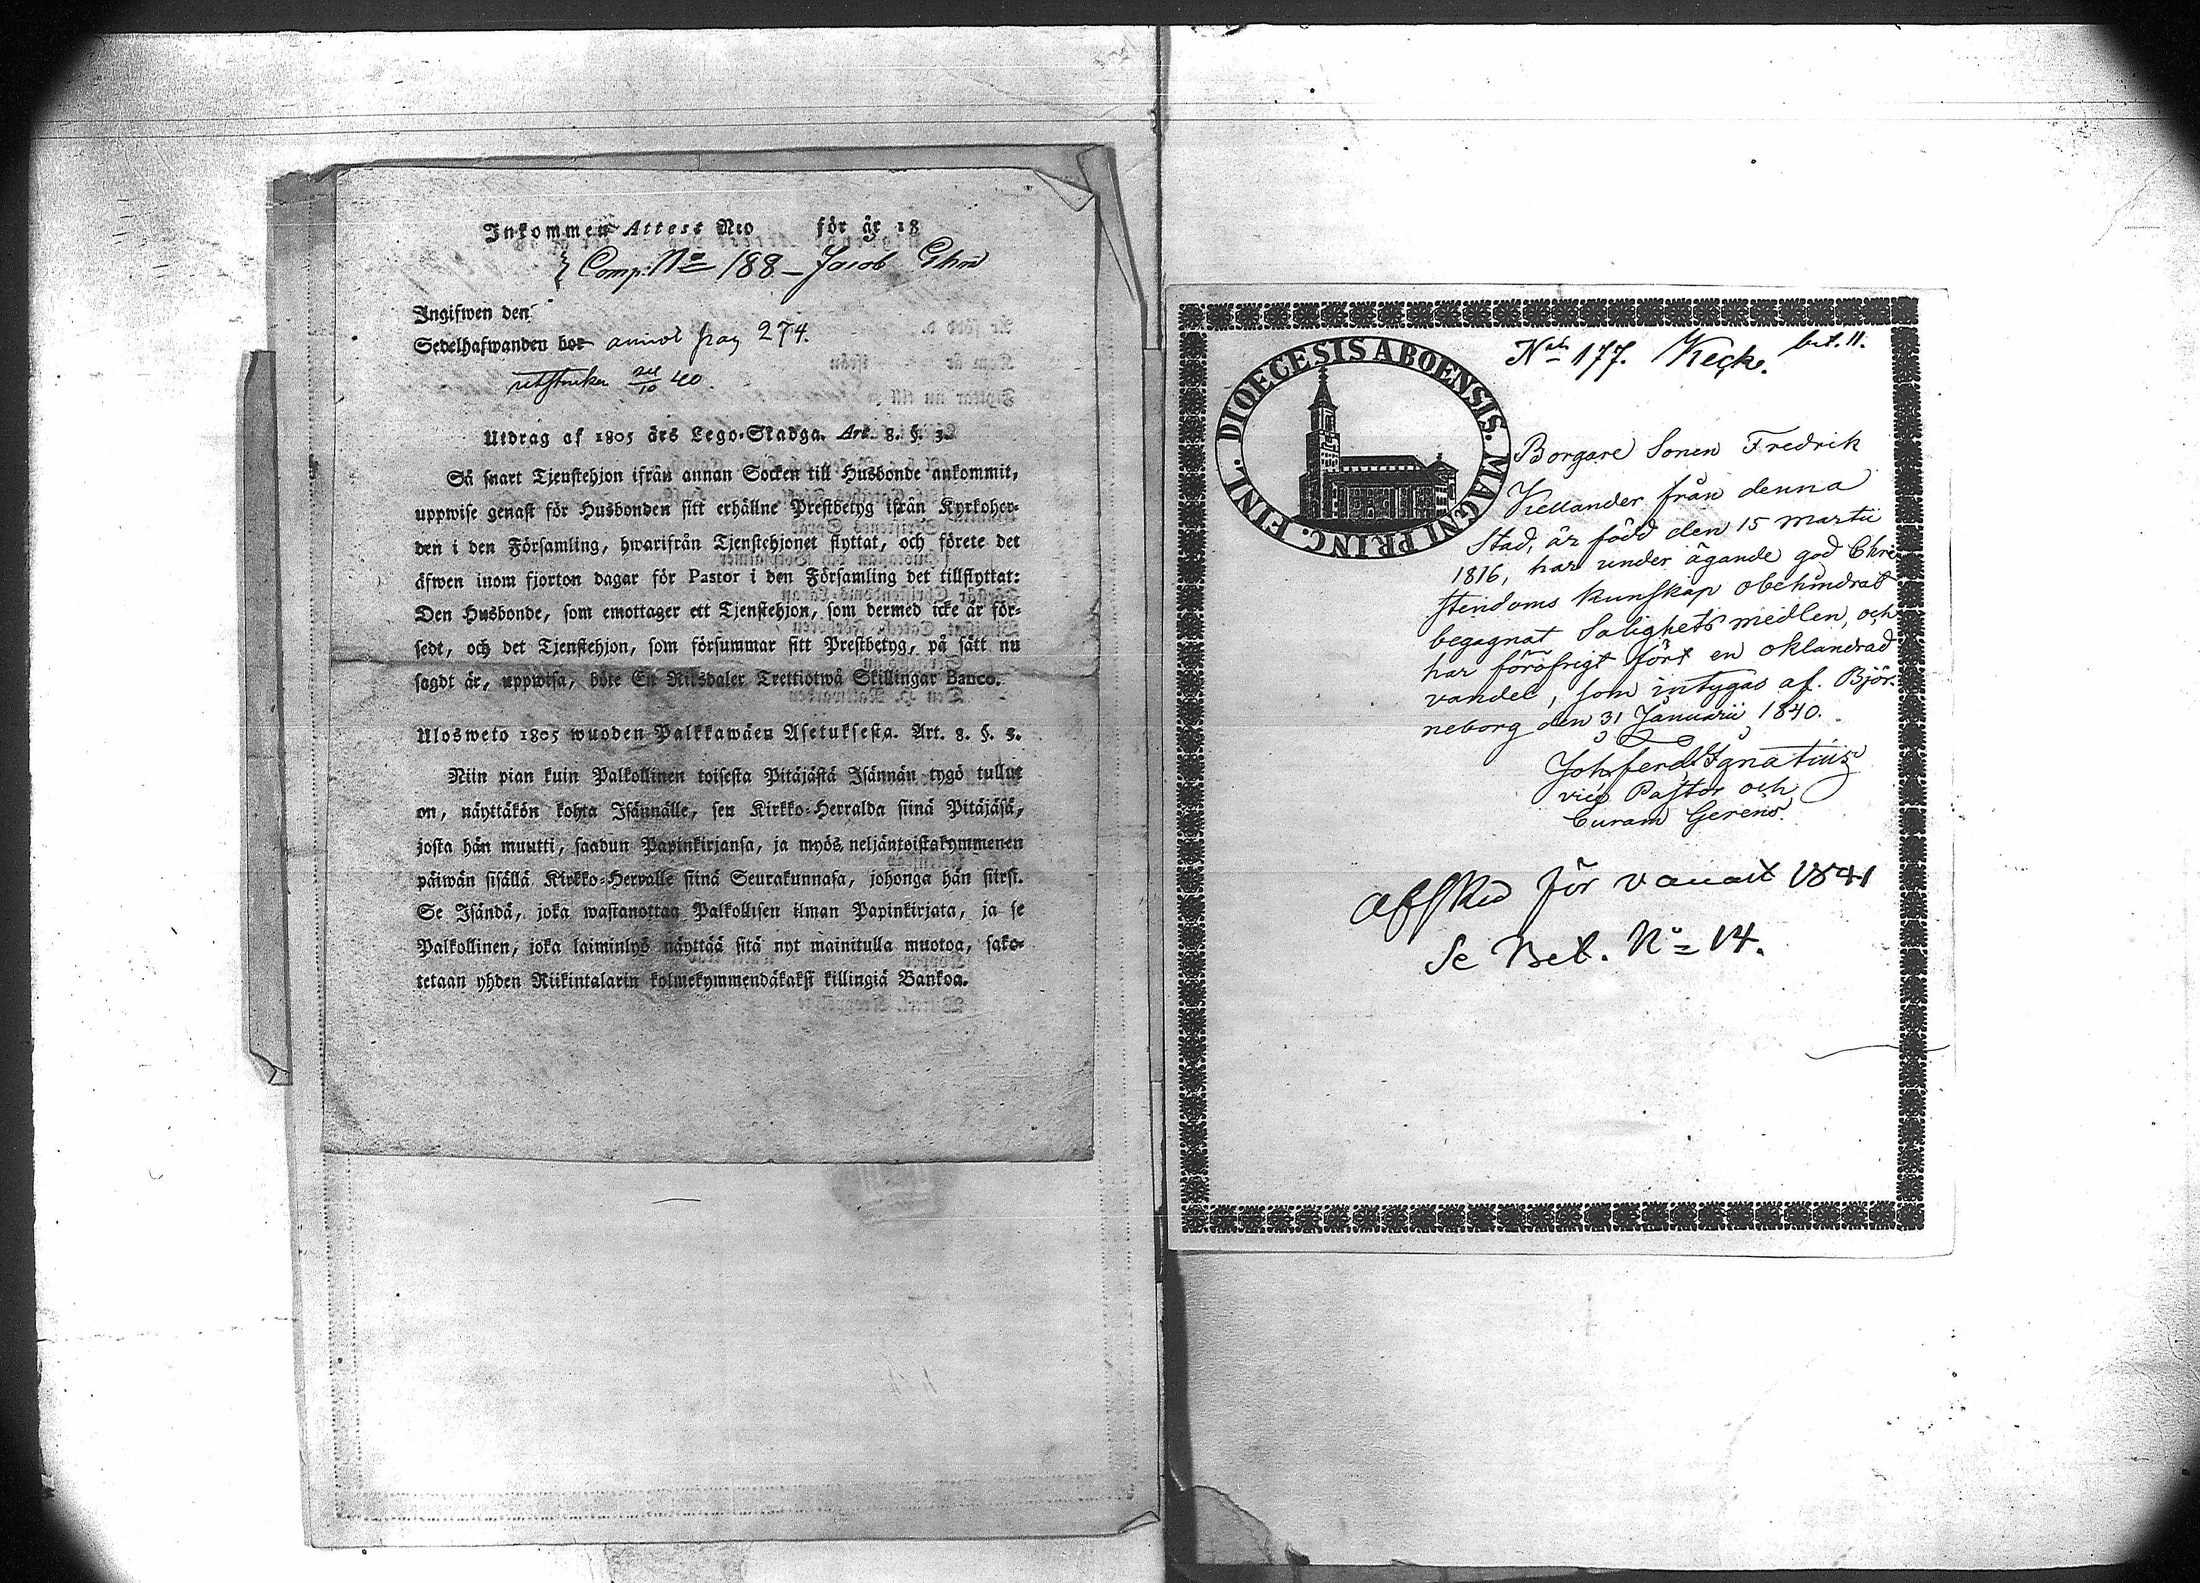 Inkommen Attest No för år 18
Comp: No 188 – Jacob
Ingifwen den
Sedelhafwanden bor annot pag 274.
utstruken 24/10 40.
Utdrag af 1805 års Lego-Stadga. Art. 8. §. 3.
Så snart Tjenstehjon ifrån annan Socken till Husbonde ankommit,
uppwise genast för Husbonden sitt erhållne Prestbetyg ifrån Kyrkoher-
den i den Församling, hwarifrån Tjenstehjonet flyttat, och förete det
äfwen inom fjorton dagar för Pastor i den Församling det tillflyttat:
Den Husbonde, som emottager ett Tjenstehjon, som dermed icke är för-
sedt, och det Tjenstehjon, som försummar sitt Prestbetyg, på sätt nu
sagdt är, uppwisa, böte En Riksdaler Trettiotwå Skillingar Banco.
Ulosweto 1805 wuoden Palkkawäen Asetuksesta. Art. 8. §. 3.
Niin pian kuin Palkollinen toisesta Pitäjästä Isännän tygö tullut
on, näyttäkön kohta Isännälle, sen Kirkko-Herralda siinä Pitäjäsä,
josta hän muutti, saadun Papinkirjansa, ja myös neljäntoistakymmenen
päiwän sisällä Kirkko-Herralle siinä Seurakunnasa, johonga hän siirsi.
Se Isändä, joka wastanottaa Palkollisen ilman Papinkirjata, ja se
Palkollinen, joka laiminlyö näyttää sitä nyt mainitulla muotoa, sako-
tetaan yhden Riikintalarin kolmekymmendäkaksi killingiä Bankoa.
DIOECESIS ABOENSIS. MAGNI PRINC. FINL.
No 177. bet. 11.
Borgare Sonen Fredrik
Kellander från denna
Stad, är född den 15 Martii
1816, har under ägande god Chri-
stendoms kunskap obehindrat
begagnat Salighets medlen, och
har föröfrigt fört en oklandrad
vandel, som intygas af. Björ-
neborg den 31 Januarii 1840.
Joh. Ferd. Ignatius
vice Pastor och
Curam Gerens.
Afsked för 1841
Se Bet. No 14.